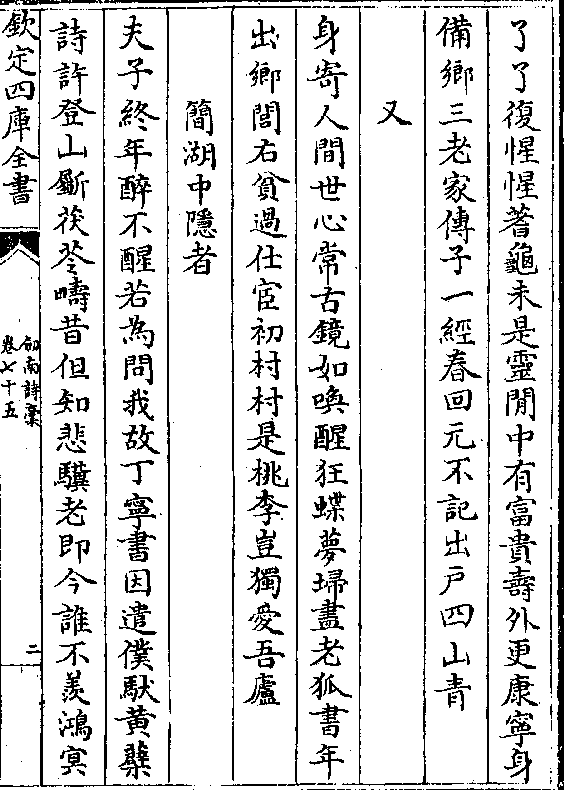 了了復惺惺蓍龜未是靈閒中有富貴壽外更康寧身
備鄉三老家傳子一經春回元不記出戶四山青
又
身寄人間世心常古鏡如喚醒狂蝶夢埽盡老狐書年
出鄉閭右貧過仕宦初村村是桃李豈獨愛吾廬
簡湖中隱者
夫子終年醉不醒若為問我故丁寧書因遣僕馱黃蘗
詩許登山斸茯苓疇昔但知悲驥老即今誰不羨鴻冥
欽定四庫全書
劍南詩槀
卷七十五
二